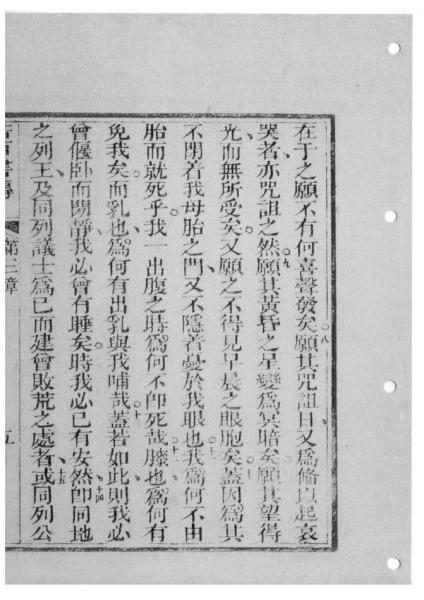 在于之願不有何喜聲發矣願其咒詛日又為備以起哀
八
哭者亦咒詛之然願其黃昏之星變為冥暗矣願其望得
九
光而無所受矣又願之不得見早晨之眼胞矣蓋因為其
十
不閉着我母胎之門又不隱着憂於我眼也我為何不由
十一
胎而就死乎我一出腹之時為何不卽死哉膝也為何有
十二
免我矣而乳也為何有出乳與我哺哉蓋若如此則我必
十三
曾偃卧而閑靜我必會有睡矣時我必已有安然卽同地
十四
之列王及同列議士為已而建曾敗荒之處者或同列公
十五
第三章
五